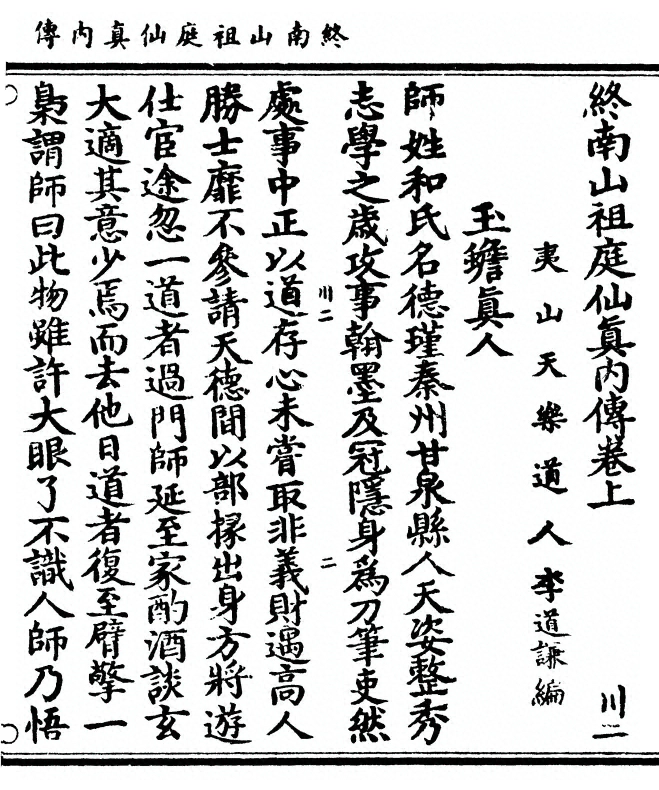 終南山祖庭仙真內傳
終南山祖庭仙眞內傳卷上 川二
夷山天樂道人李道謙編
玉蟾眞人
師姓和氏名德瑾秦州甘泉縣人天姿整秀
志學之歲攻事翰墨及冠隱身爲刀筆吏然
川二 二
處事中正以道存心未嘗取非義財遇高人
勝士靡不參請天德間以部掾出身方將遊
仕官途忽一道者過門師延至家酌酒談玄
大適其意少焉而去他日道者復至臂擎一
梟謂師曰此物雖許大眼了不識人師乃悟